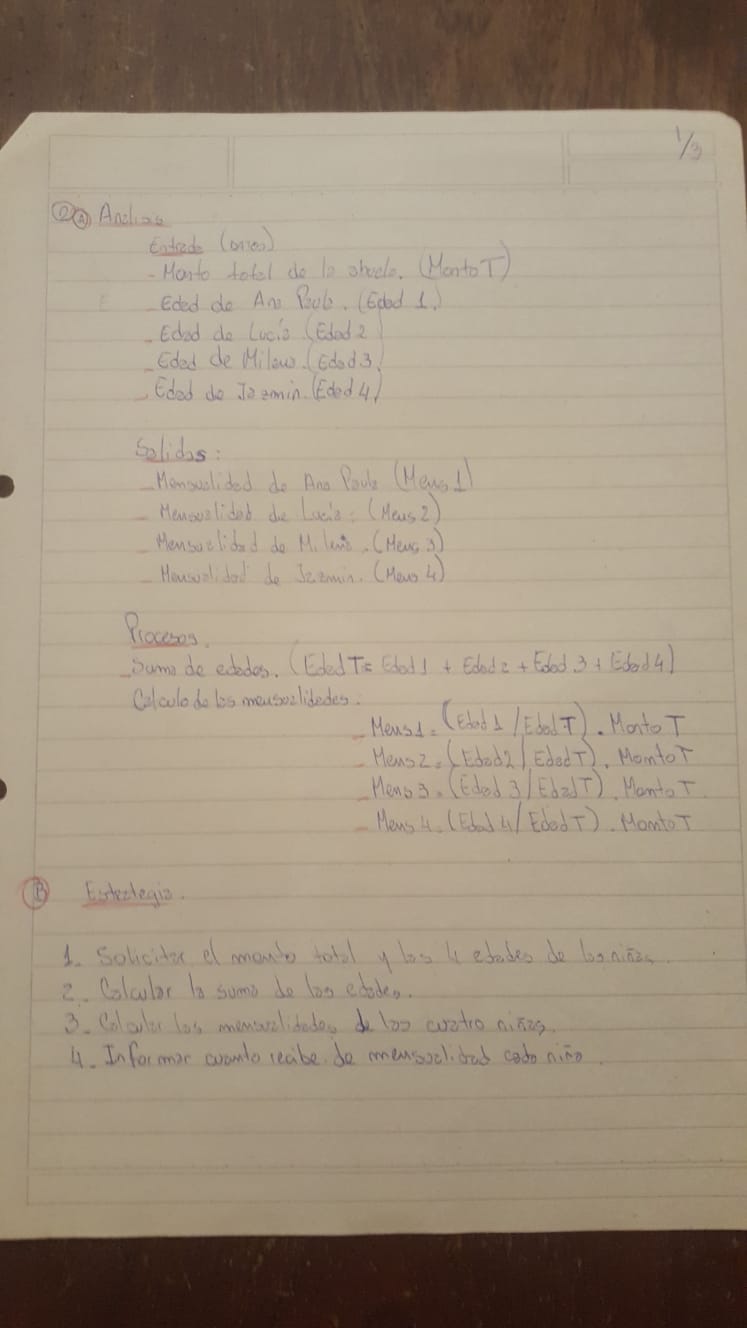 1/3
2 A Análisis
Entrada
- Monto total de la abuela. (Monto T)
- Edad de Ana Paula. (Edad 1)
- Edad de Lucía (Edad 2)
- Edad de Milena. (Edad 3)
- Edad de Jazmin. (Edad 4)
Salidas:
- Mensualidad de Ana Paula (Mens 1)
- Mensualidad de Lucía: (Mens 2)
- Mensualidad de Milena. (Mens 3)
- Mensualidad de Jazmin. (Mens 4)
Procesos.
- Suma de edades. (Edad T = Edad 1 + Edad 2 + Edad 3 + Edad 4)
Calculo de las mensualidades:
- Mens 1 = (Edad 1 / Edad T) . Monto T
- Mens 2 = (Edad 2 / Edad T) . Monto T
- Mens 3 = (Edad 3 / Edad T) . Monto T
- Mens 4 = (Edad 4 / Edad T) . Monto T
B Estrategia.
1. Solicitar el monto total y las 4 edades de las niñas.
2. Calcular la suma de las edades.
3. Calcular las mensualidades de las cuatro niñas.
4. Informar cuanto recibe de mensualidad cada niña.